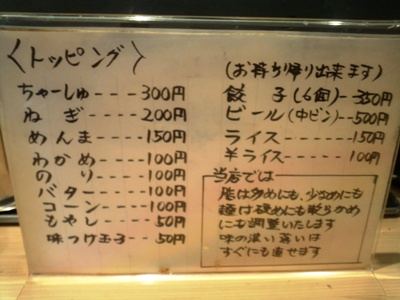 〈トッピング〉
ちゃーしゅ----300円
ねぎ----200円
めんま----150円
わかめ----100円
のり----100円
バター----100円
コーン----100円
もやし----50円
味つけ玉子--50円
(お持ち帰り出来ます)
餃子(6個)--350円
ビール(中ビン)-500円
ライス----150円
半ライス---100円
当店では
脂は多めにも、少なめにも
麺は硬めにも軟らかめ
にも調整いたします
味の濃い薄いは
すぐにも直せます